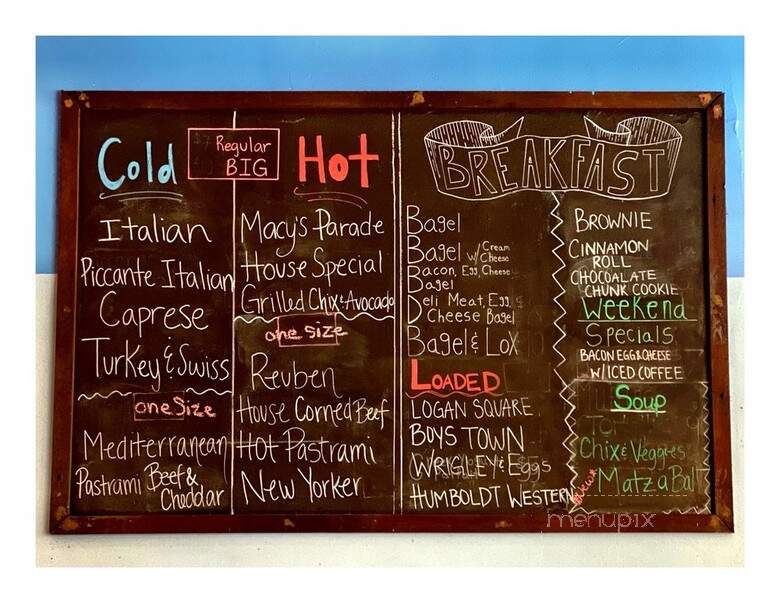 Cold
Regular
BIG
Hot
Italian
Piccante Italian
Caprese
Turkey & Swiss
one Size
Mediterranean
Pastrami Beef &
Cheddar
Macy's Parade
House Special
Grilled Chix & Avocado
one Size
Reuben
House Corned Beef
Hot Pastrami
New Yorker
BREAKFAST
Bagel
Bagel w/ Cream Cheese
Bacon, Egg, Cheese
Bagel
Deli Meat, Egg, &
Cheese Bagel
Bagel & Lox
LOADED
LOGAN SQUARE
BOYS TOWN
WRIGLEY & Eggs
HUMBOLDT WESTERN
BROWNIE
CINNAMON
ROLL
CHOCOALATE
CHUNK COOKIE
Weekend
Specials
BACON EGG & CHEESE
W/ICED COFFEE
Soup
Chix & Veggies
Matza Ball
menupix